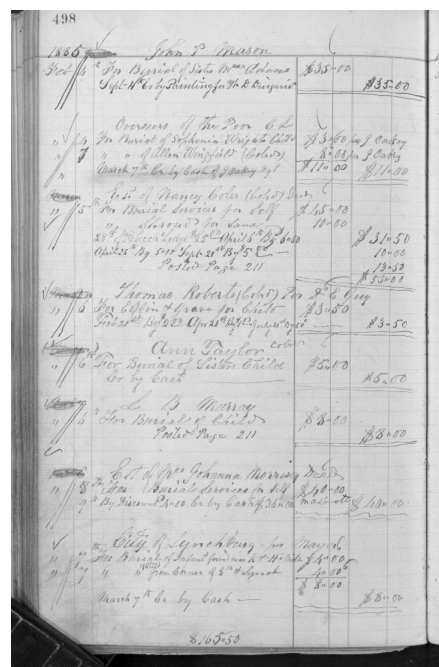 498
1885 John P. Mason
Feb 4 For Burial of Sister Mrs Adams $35-00
Sept 4th Cr by Painting for W. D. Diuguid $35-00
Overseers of the Poor C L
" 4 For Burial of Sophonia Wright Child $3-00 pr J Oakey
" 7 " " of Allen Wingfield (Cold) 8-00 pr J Oakey
March 7th Cr by Cash of J Oakey Agt $11-00 $11-00
Est. of Nancy Coles (Cold) Dec
" 5 For Burial Services for Self $45-00
" " Shroud for Same 10-00
Lodge April 6th By 6-50 $31-50
April 25th By 5-00 Sept 21st By 5 10-00
Posted Page 211 13-50
$55-00
Thomas Roberts (Cold) Por Guy
" 6 For Coffin & Grave for Child $3-50
Feb 21st By April 25th By July By 50 $3-50
Ann Taylor cold
" 6th For Burial of Sister Child $5-00
Cr by Cash $5-00
L B Murray
" 6 For Burial of Child $8-00
Posted Page 211 $8-00
Est. of Mrs Johanna Morrisy Decd
" 8th For Burial Services for Self $40-00
9th By Discount 4-00 Cr by Cash 36-00 $40-00
City of Lynchburg - for Mayor
" For Burial of Infant found $4-00
" " " from Corner of 8th & 4-00
$8-00
March 7th Cr by Cash $8-00
$165-50